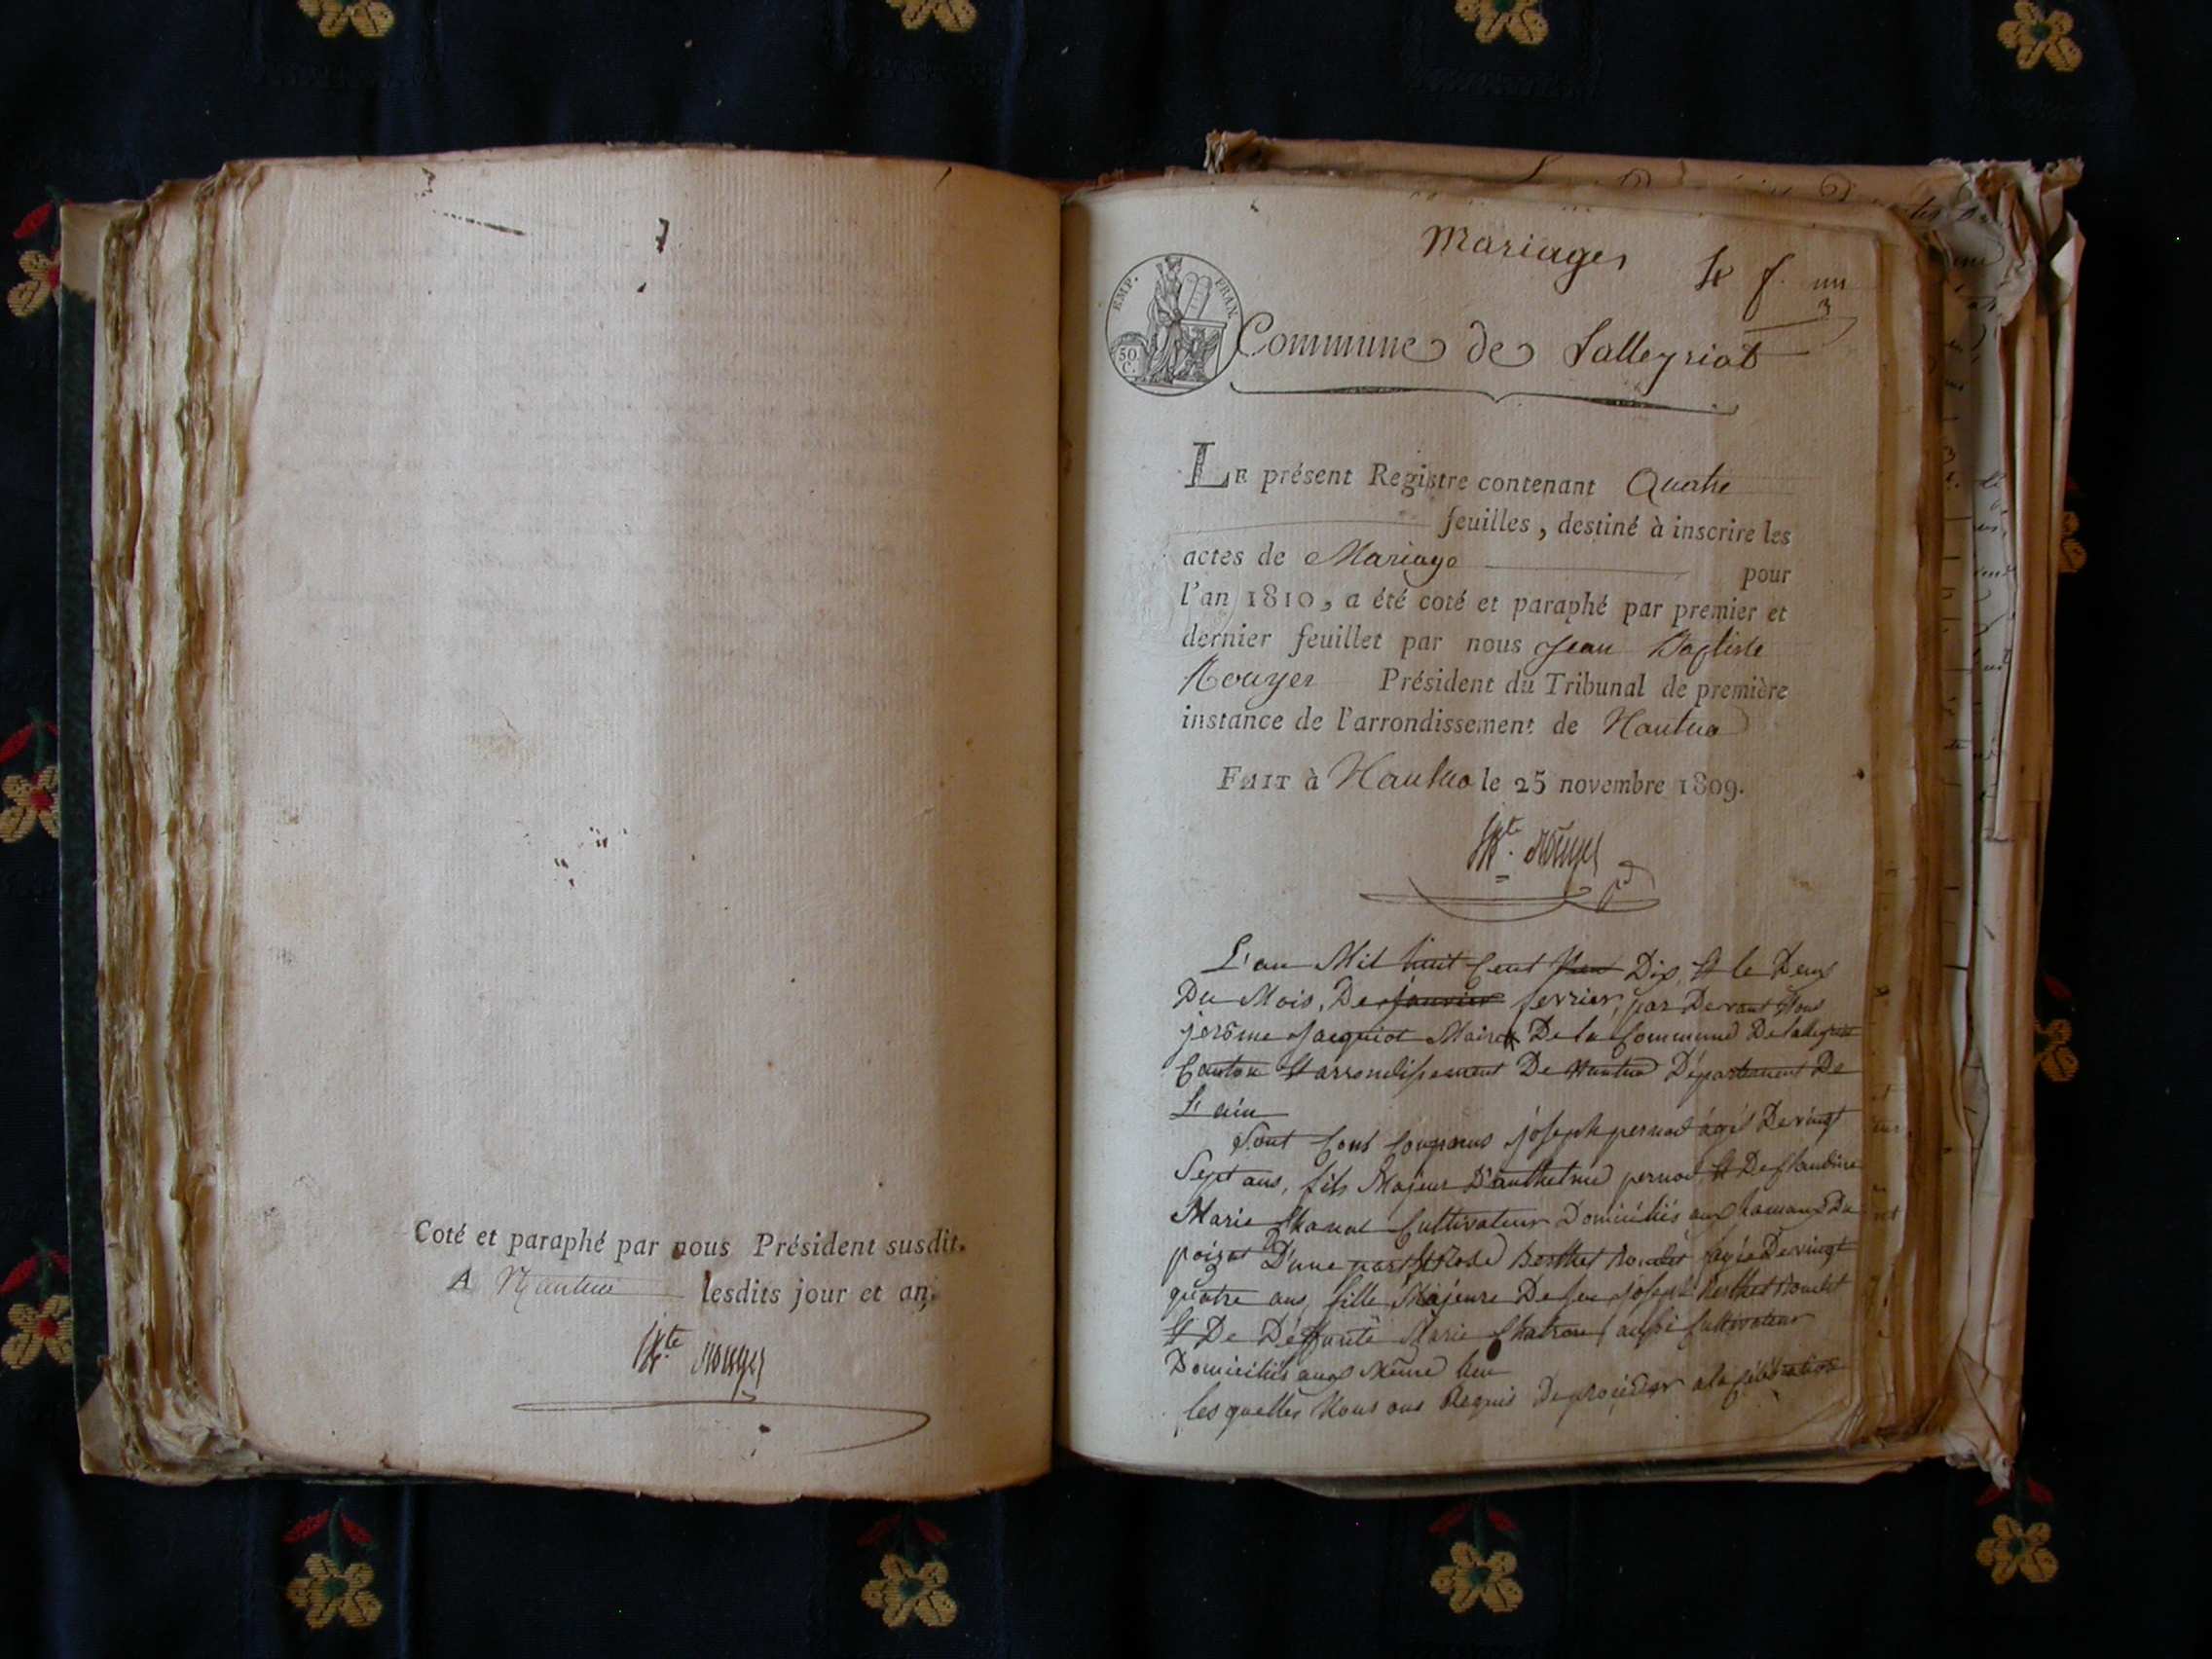 Coté et paraphé par nous Président susdit.
A Nantua lesdits jour et an.
Bte. Rouyer
Mariages
f. un
3
EMP. FRAN.
50 C.
Commune de Lalleyriat
LE présent Registre contenant Quatre
feuilles, destiné à inscrire les
actes de Mariage pour
l'an 1810, a été coté et paraphé par premier et
dernier feuillet par nous Jean Baptiste
Rouyer Président du Tribunal de première
instance de l'arrondissement de Nantua
FAIT à Nantua le 25 novembre 1809.
Bte. Rouyer
L'an Mil huit Cent Dix, Et le Deux
Du Mois, De janvier fevrier, par Devant Nous
jerôme jacquiot Maire De la Commune De lalleyriat
Canton Et arrondissement De Nantua Département De
L'ain
Sont Comparus joseph pernod agé De vingt
Sept ans, fils Majeur D'anthelme pernod Et De Claudine
Marie Chanal Cultivateur Domiciliés aux hamaux Du
poizat D'une part Et Rose Berthet Bondet agée De vingt
quatre ans, fille Majeure De feu joseph Berthet Bondet
Et De Deffunte Marie aussi Cultivateur
Domiciliés aux Même lieu
lesquelles Nous ons Requis De procéder a la Célébration